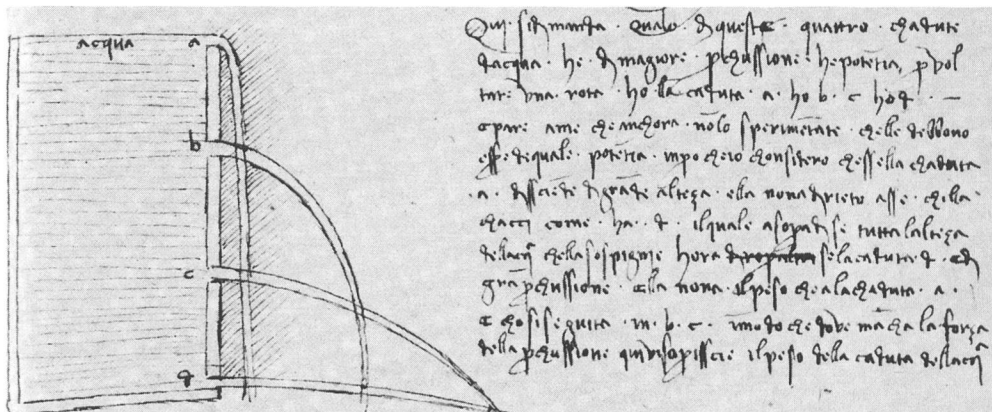 acqua a
b
c
d
Qui si dimanda . quale di queste . quattro . chadute
dacqua . he . di magiore . perchussione . he potētia , p vol
tare vna . rota . ho . la . caduta . a . ho b . c ho d . —
e pare a me che anchora . nō lo sperimētate . chelle debbono
esse de quale . potētia . inpo che io chonsidero chessella chaduta
. a . disciēde di grāde alteza . ella non a dirieto asse . chi lla
chacci come . ha . d . il quale a sopa di se tutta lalteza
della che lla sospignie hora se la caduta . d . e di
grā perchussione . ella non a . il peso che a la chaduta . a .
e chosi seguita . in . b . c . in modo che dove mācha la forza
della perchussione quivi il peso della caduta dell acq